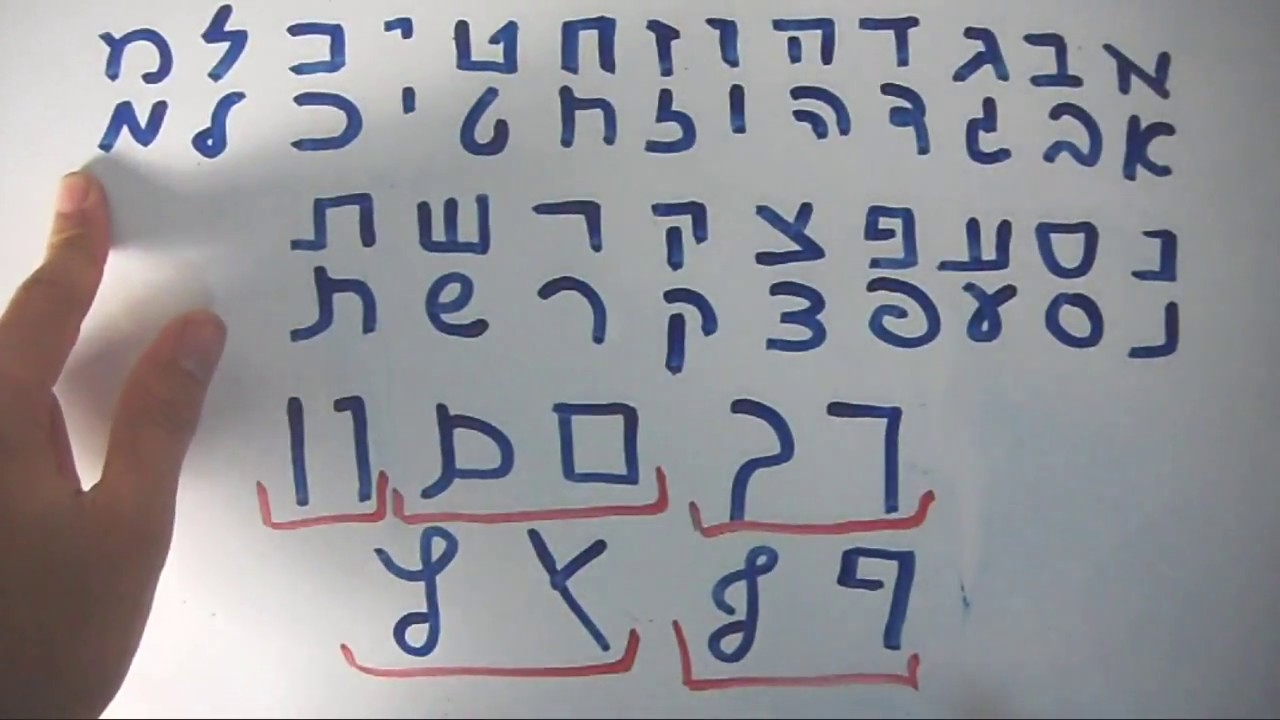 א ב ג ד ה ו ז ח ט י כ ל מ
א ב ג ד ה ו ז ח ט י כ ל מ
נ ס ע פ צ ק ר ש ת
נ ס ע פ צ ק ר ש ת
ך ך ם ם ן ן
ף ף ץ ץ